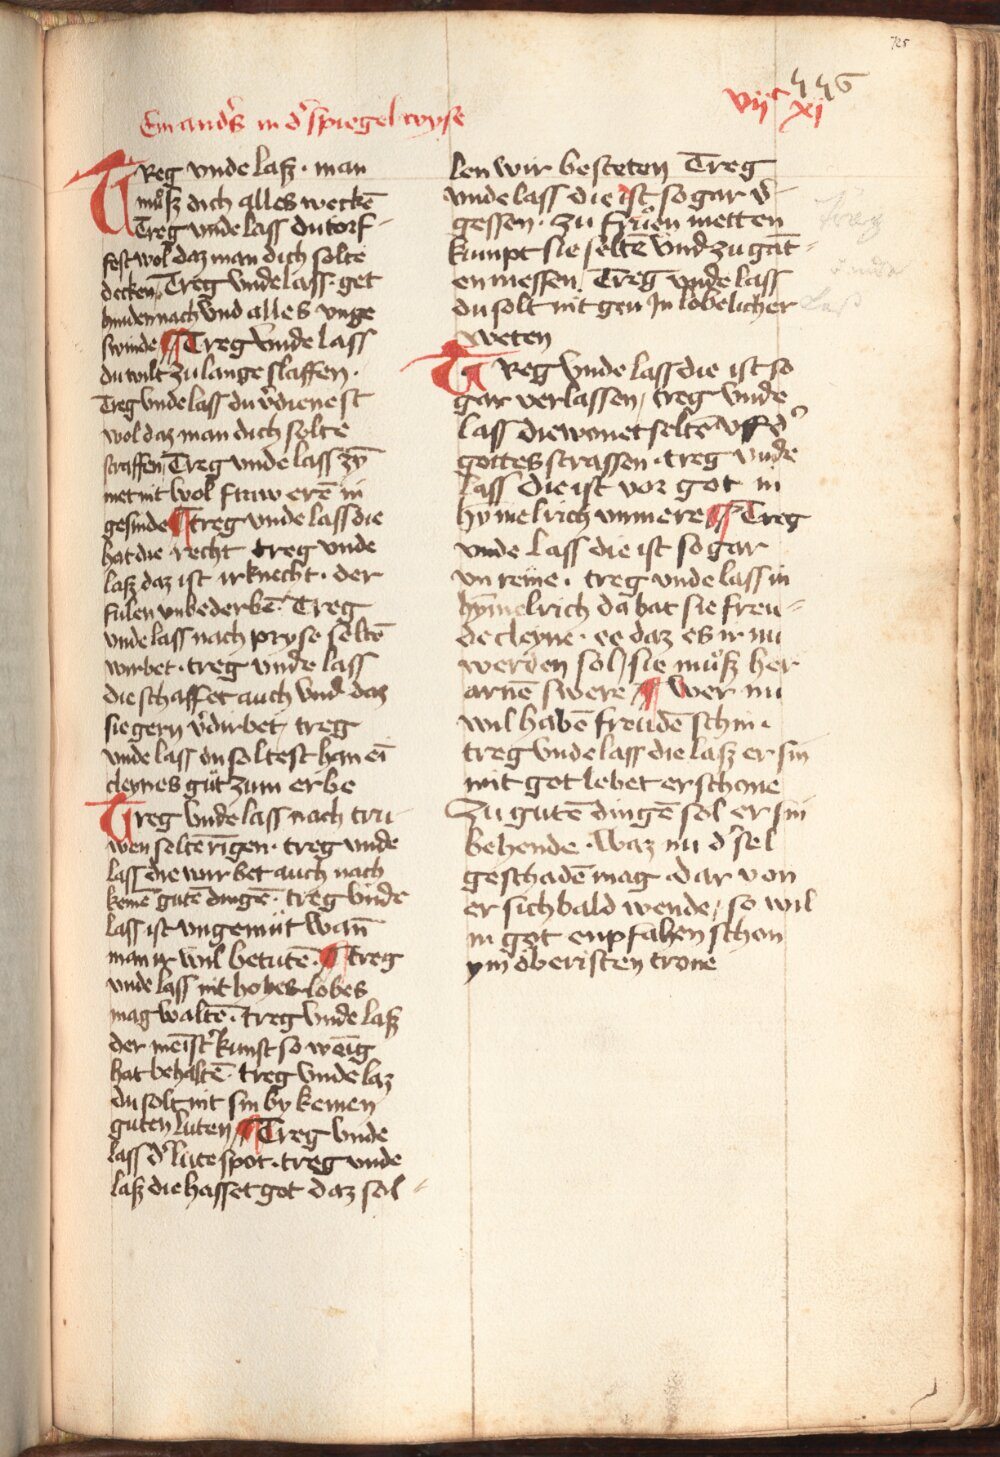 725
446
vijc xj
Ein and's in d' spiegel wyse
Treg vnde laß · man
muͦß dich alles weckē
Treg vnde lass du torf-
fest wol daz man dich solte
decken, Treg vnde lass · get
hinden nach vnd alles vnge
swinde ¶ Treg vnde lass
du wilt zu lange slaffen ·
Treg vnde lass du v'dienest
wol daz man dich solte
straffen, Treg vnde lass zȳ
met nit wol frauweren in
gesinde ¶ treg vnde lass die
hat die recht treg vnde
laß daz ist ir knecht · der
fulen vnbederbē · Treg
vnde lass nach pryse seltē
wirbet · treg vnde lass
die schaffet auch vnd daz
sie gern v'dirbet, treg
vnde lass du soltest han eī
cleynes guͦt zum erbe
Treg vnde lass nach tru-
wen seltē ringen · treg vnde
lass die wirbet auch nach
keinē gutē dingē · treg vnde
lass ist vngemüt wañ
man ir wil betutē · ¶ treg
vnde lass nit hohes lobes
mag waltē · treg vnde laß
der meist' kunst so wenig
hat behaltē · treg vnde laz
du solt nit sin by keinen
guten luten ¶ Treg vnde
lass d' lute spot · treg vnde
laß die hasset got daz sol-
len wir besteten Treg
vnde lass die ist so gar v'-
gessen · zu fruͦen metten
kumpt sie seltē vnd zu gūt-
en messen, Treg vnde lass
du solt nit gen Jn lobelicher
weten
Treg vnde lass die ist so
gar verlassen, treg vnde
lass die wonet seltē vff d'
gottes strassen · treg vnde
lass die ist vor got in
hymelrich vnmere ¶ Treg
vnde lass die ist so gar
vnreine · treg vnde lass in
hymelrich da hat sie freu-
de cleyne · ee daz es ir nu
werden sol, sie muͦß her
arnē swere ¶ Wer nu
wil habē freudē schin ·
treg vnde lass die laß er sin
mit got lebet er schone
Zu gutē dingē sol er sin
behende · Waz nu d' sel
geschadē mag · dar von
er sich bald wende, so wil
in got enpfahen schon
ym oberisten trone